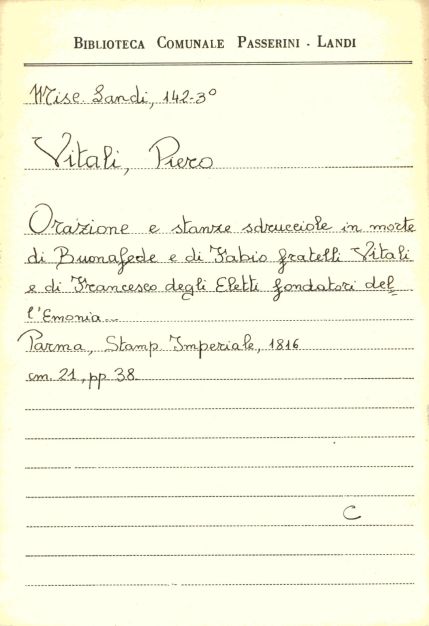 BIBLIOTECA COMUNALE PASSERINI - LANDI
Misc. Landi, 142-3º
Vitali, Piero
Orazione e stanze sdrucciole in morte
di Buonafede e di Fabio fratelli Vitali
e di Francesco degli Eletti fondatori del=
l'Emonia...
Parma, Stamp. Imperiale, 1816
cm. 21, pp. 38.
C